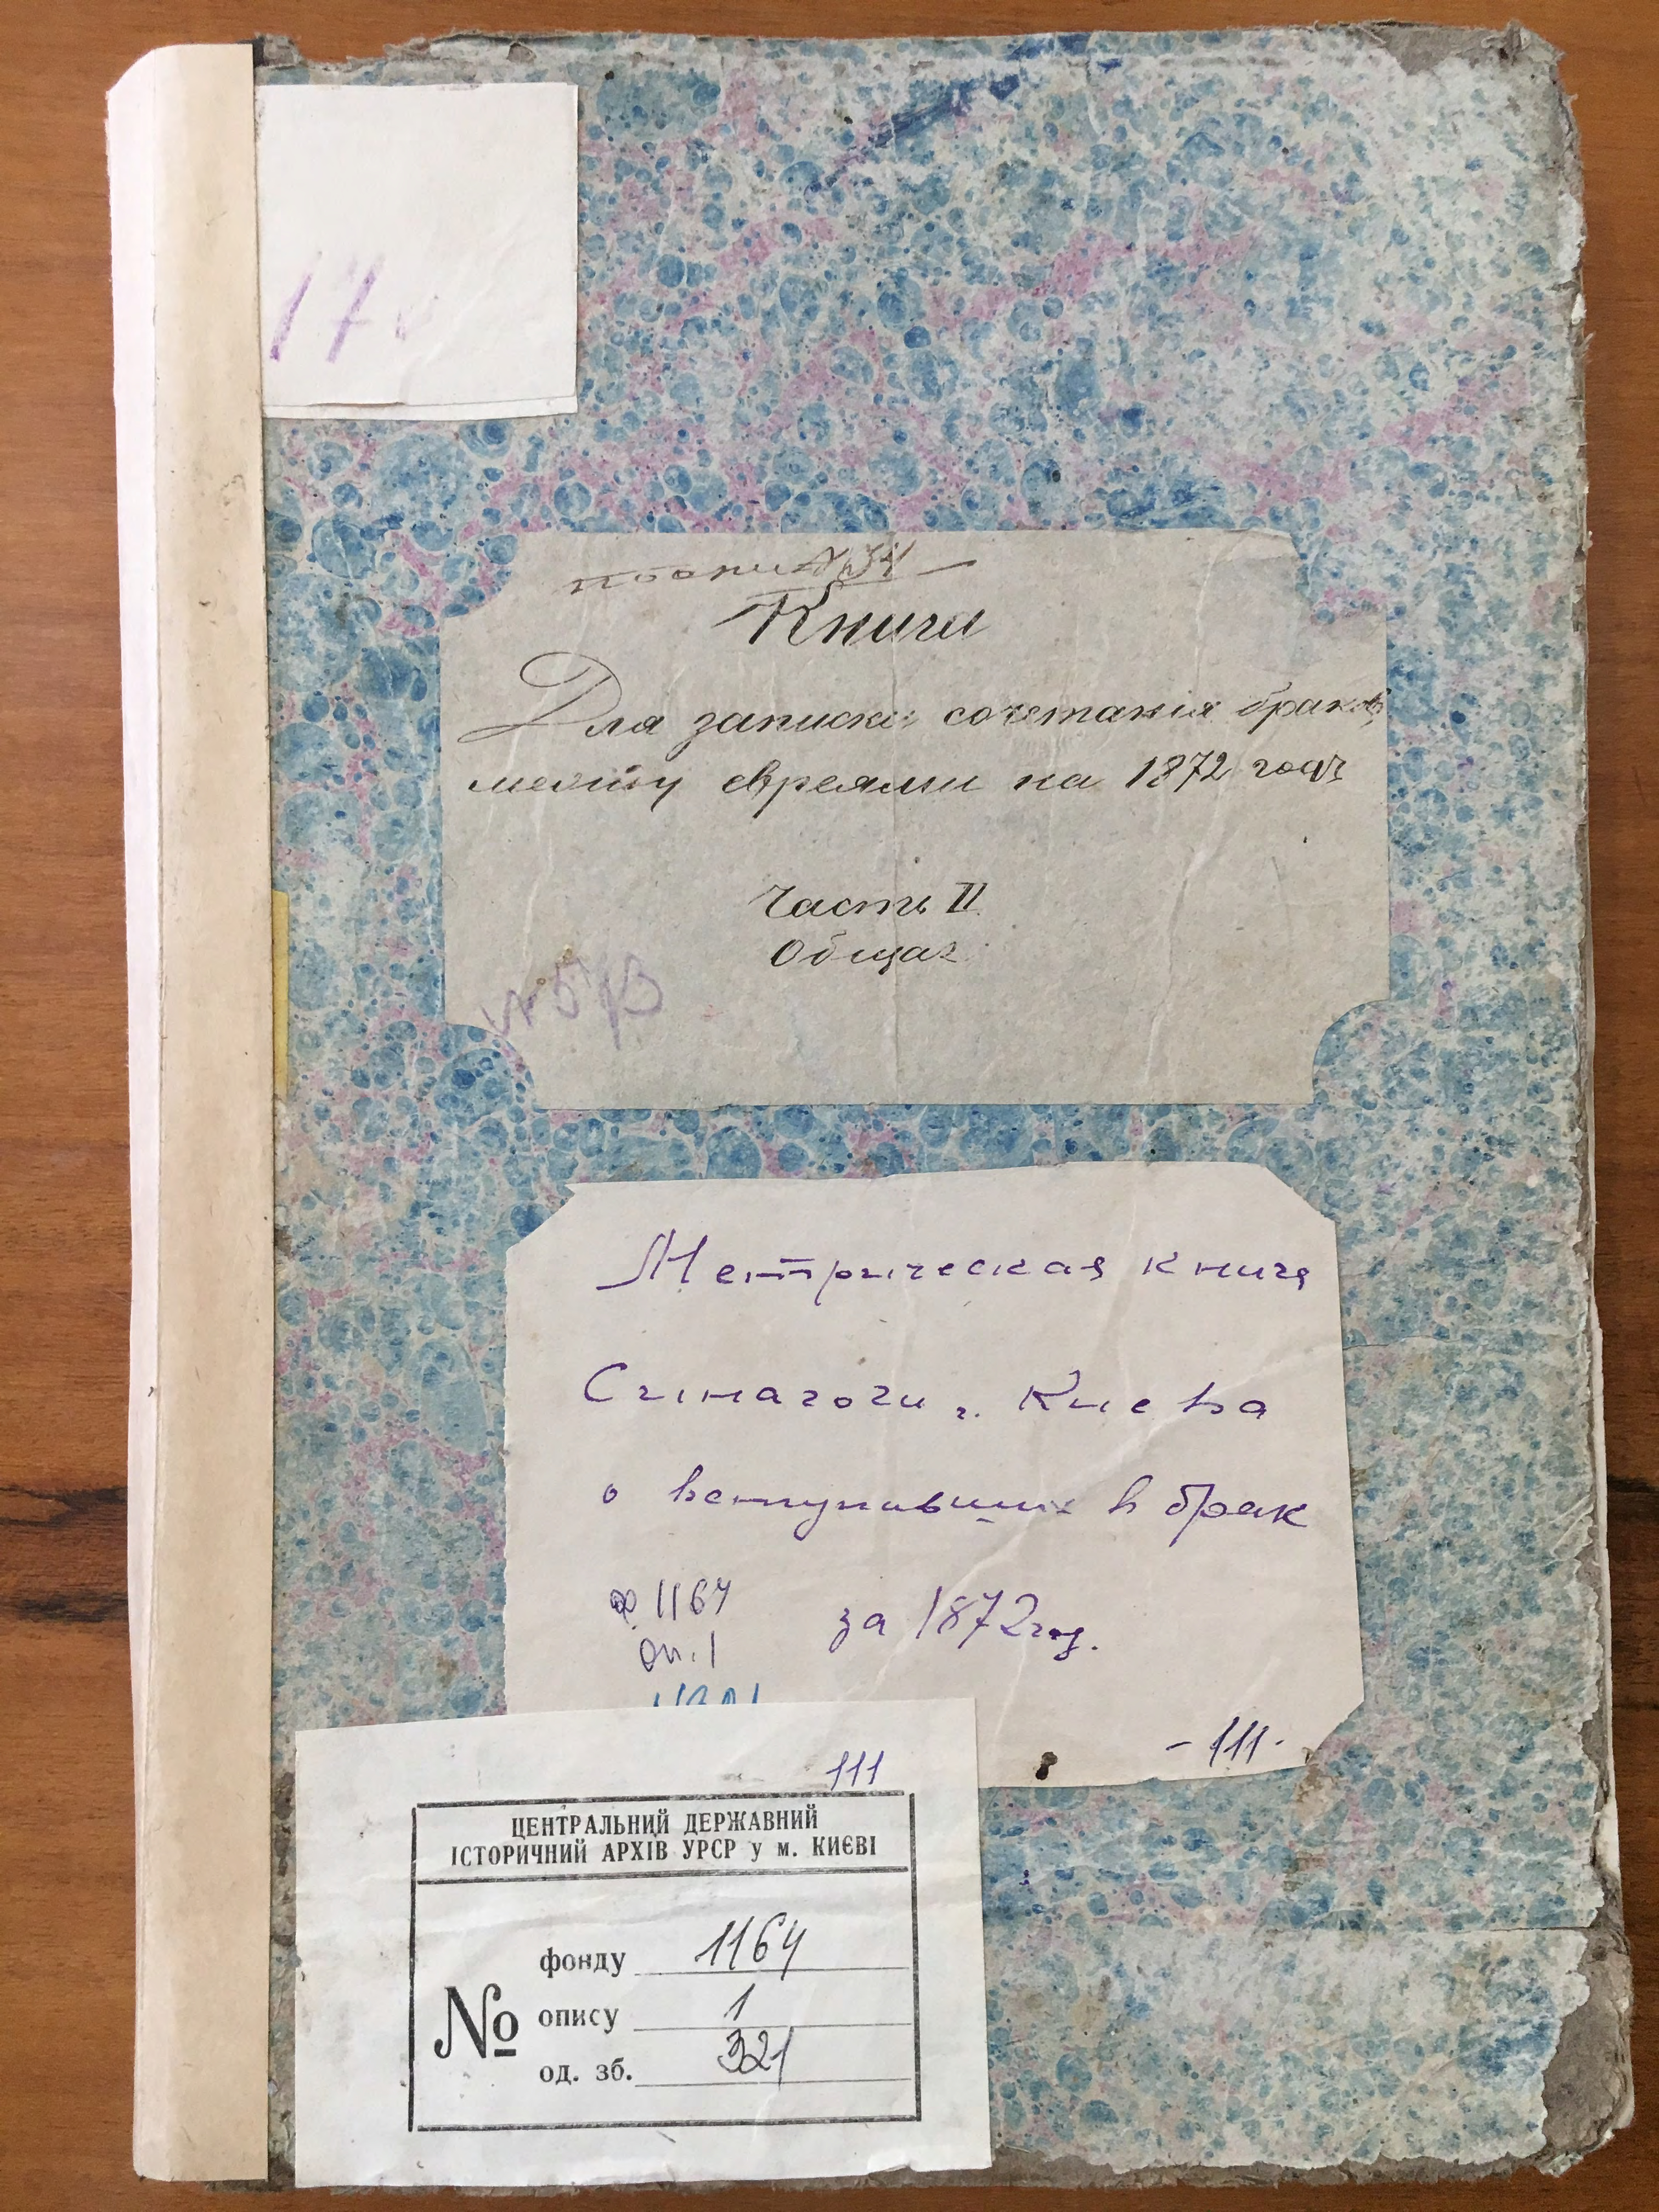 17
Книга
Для записки сочетанія браковъ
между евреями на 1872 годъ
Часть II
Общая
Метрическая книга
Синагоги г. Киева
о вступивших в брак
ф 1164
за 1872 год.
оп. 1
- 111 -
111
ЦЕНТРАЛЬНИЙ ДЕРЖАВНИЙ
ІСТОРИЧНИЙ АРХІВ УРСР у м. КИЄВІ
№
фонду 1164
опису 1
од. зб. 321